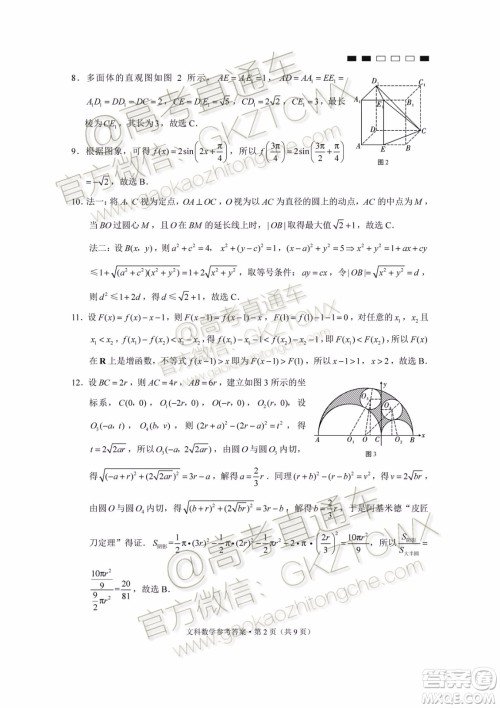 8．多面体的直观图如图 2 所示，AE = A₁E₁ = 1，AD = AA₁ = EE₁ =
A₁D₁ = DD₁ = DC = 2，CE = D₁E₁ = √5，CD₁ = 2√2，CE₁ = 3，最长
棱为 CE₁，其长为 3，故选 C．
图 2
9．根据图象，可得 f(x) = 2sin(2x + π/4)，所以 f(3π/4) = 2sin(3π/2 + π/4)
= −√2，故选 B．
10．法一：将 A，C 视为定点，OA⊥OC，O 视为以 AC 为直径的圆上的动点，AC 的中点为 M，
当 BO 过圆心 M，且 O 在 BM 的延长线上时，|OB| 取得最大值 √2+1，故选 C．
法二：设 B(x，y)，则 a²+c²=4，x²+(y−c)²=1，(x−a)²+y²=5 ⇒ x²+y²=1+ax+cy
≤1+√((a²+c²)(x²+y²))=1+2√(x²+y²)，取等号条件：ay=cx，令|OB|=√(x²+y²)=d，
则 d²≤1+2d，得 d≤√2+1，故选 C．
11．设 F(x)=f(x)−x−1，则 F(x−1)=f(x−1)−x，F(1)=f(1)−1−1=0，对任意的 x₁，x₂
且 x₁<x₂，f(x₁)−f(x₂)<x₁−x₂，得 f(x₁)−x₁−1<f(x₂)−x₂−1，即 F(x₁)<F(x₂)，所以 F(x)
在 R 上是增函数，不等式 f(x−1)>x 即为 F(x−1)>F(1)，所以 x−1>1，x>2，故选 B．
12．设 BC=2r，则 AC=4r，AB=6r，建立如图 3 所示的坐
标系，C(0，0)，O₁(−2r，0)，O(−r，0)，O₂(r，0)，设
O₃(−a，t)，O₄(b，v)，则 (2r+a)²−(2r−a)²=t²，得
t=2√(2ar)，所以 O₃(−a，2√(2ar))，由圆 O 与圆 O₃ 内切，
图 3
得 √((−a+r)²+(2√(2ar))²)=3r−a，a=2/3 r．同理 (r+b)²−(r−b)²=v²，得 v=2√(br)，
由圆 O 与圆 O₄ 内切，得 √((b+r)²+(2√(br))²)=3r−b，b=2/3 r，于是阿基米德“皮匠
刀定理”得证．S阴影=1/2π•(3r)²−1/2π•(2r)²−1/2πr²−2•π•(2r/3)²=10πr²/9；所以 S阴影/S大半圆=
(10πr²/9)/(9/2 πr²)=20/81，故选 B．
文科数学参考答案 • 第 2 页（共 9 页）
@高考直通车
官方微信：GKZTCWX
www.gaokaozhitongche.com
答案圈